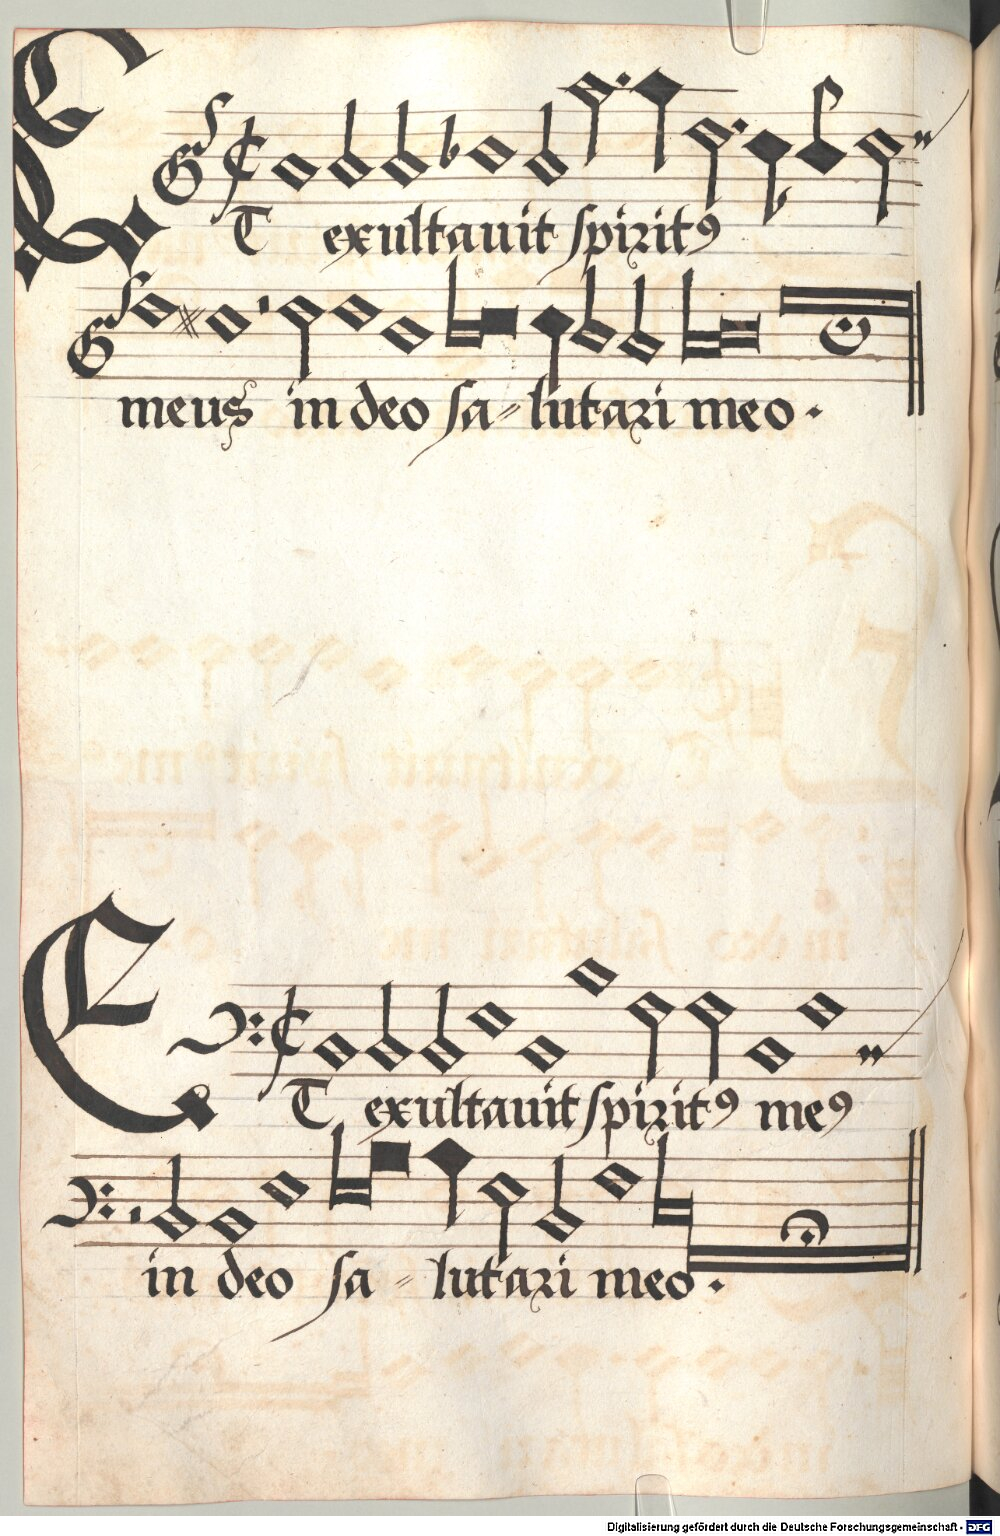 ET exultauit spiritꝰ
meus in deo sa= lutari meo.
ET exultauit spiritꝰ meꝰ
in deo sa = lutari meo.
Digitalisierung gefördert durch die Deutsche Forschungsgemeinschaft - DFG